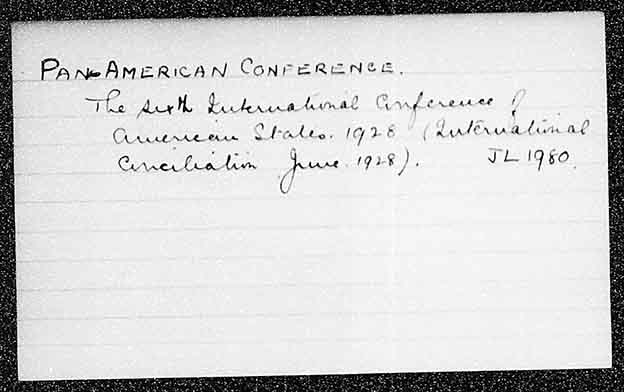 PAN-AMERICAN CONFERENCE.
The sixth International Conference of
American States. 1928 (International
Conciliation June 1928). JL 1980.